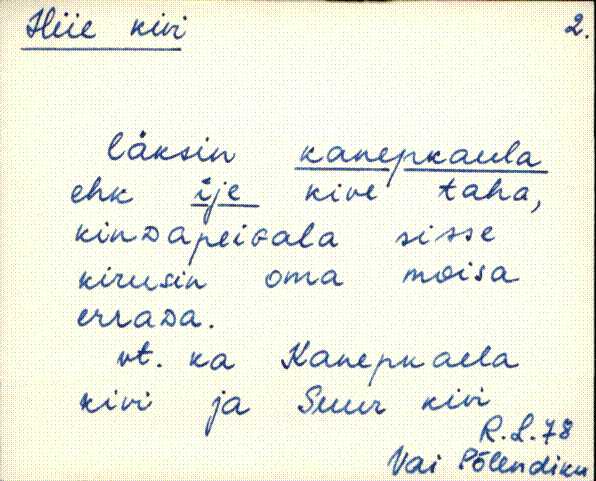 Hiie kivi 2.
läksin kanepkaula
ehk ije kive taha,
kindapeigala sisse
kirusin oma moisa
errada.
vt. ka Kanepkaela
kivi ja Suur kivi
R.L.78
Vai Põlendiku